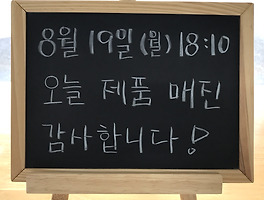 8월 19일(월) 18:10
오늘 제품 매진
감사합니다!